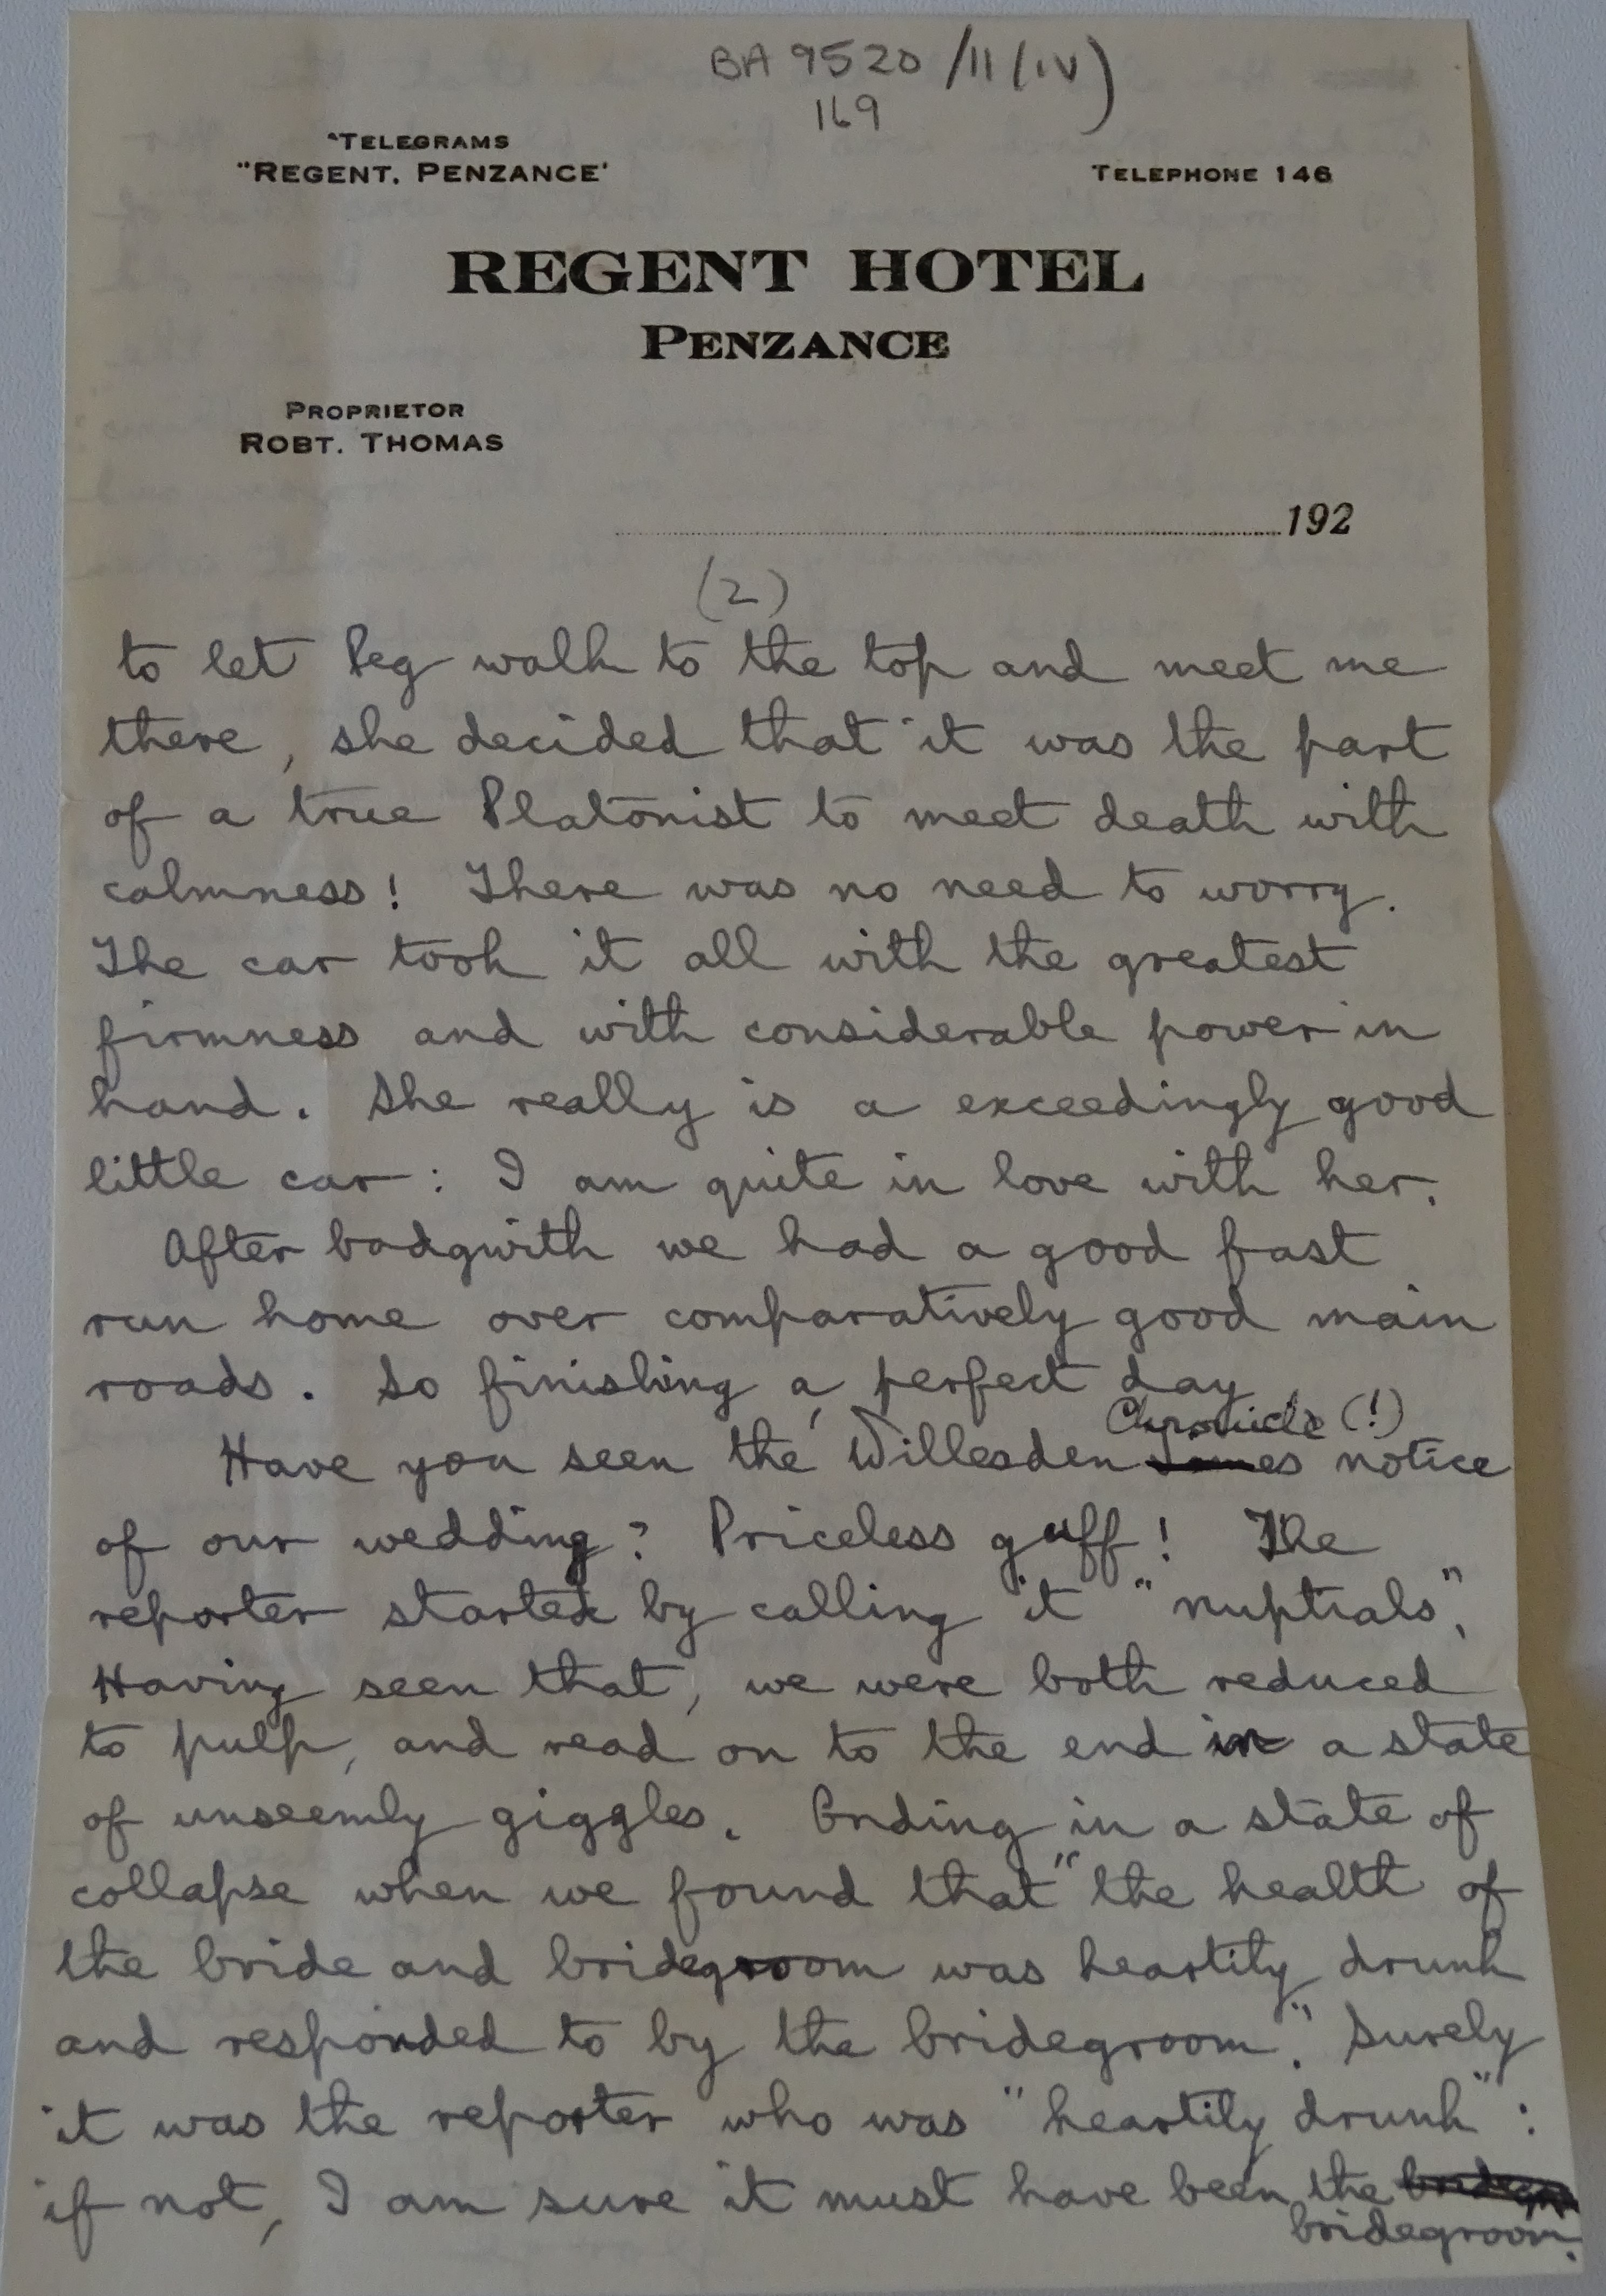 BA 9520/11(iv)
169
"TELEGRAMS
"REGENT. PENZANCE'
TELEPHONE 146
REGENT HOTEL
PENZANCE
PROPRIETOR
ROBT. THOMAS
192
(2)
to let Peg walk to the top and meet me
there, she decided that it was the part
of a true Platonist to meet death with
calmness! There was no need to worry.
The car took it all with the greatest
firmness and with considerable power in
hand. She really is a exceedingly good
little car: I am quite in love with her.
After Cadgwith we had a good fast
run home over comparatively good main
roads. So finishing a perfect day.
Chronicle (!)
Have you seen the Willesden notice
of our wedding? Priceless guff! The
reporter started by calling it "nuptials",
Having seen that, we were both reduced
to pulp, and read on to the end in a state
of unseemly giggles. Ending in a state of
collapse when we found that "the health of
the bride and bridegroom was heartily drunk
and responded to by the bridegroom". Surely
it was the reporter who was "heartily drunk":
if not, I am sure it must have been the
bridegroom.